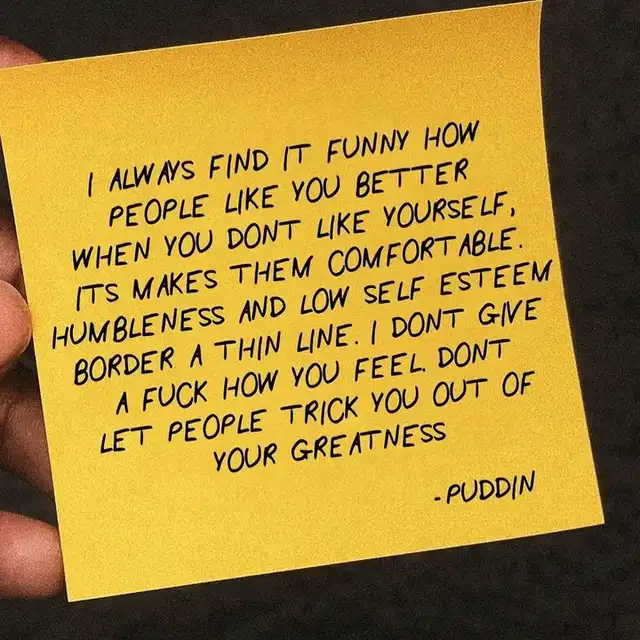 I ALWAYS FIND IT FUNNY HOW
PEOPLE LIKE YOU BETTER
WHEN YOU DONT LIKE YOURSELF,
ITS MAKES THEM COMFORTABLE.
HUMBLENESS AND LOW SELF ESTEEM
BORDER A THIN LINE. I DONT GIVE
A FUCK HOW YOU FEEL. DONT
LET PEOPLE TRICK YOU OUT OF
YOUR GREATNESS
-PUDDIN